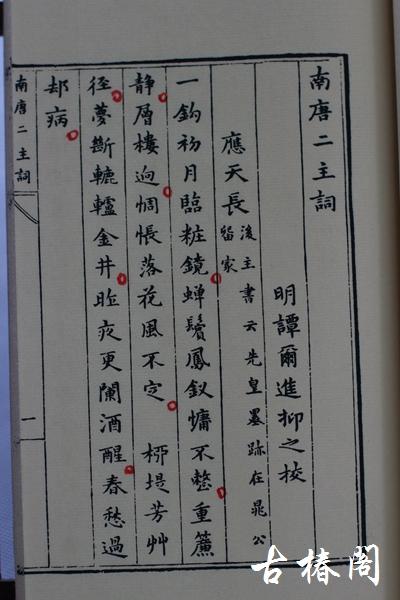 南唐二主詞
明譚爾進抑之挍
應天長後主書云先皇墨跡在晁公留家
一鈎初月臨粧鏡蟬鬢鳳釵慵不整重簾
静層樓逈惆悵落花風不定 桺堤芳艸
徑夢斷轆轤金井昨夜更闌酒醒春愁過
却病
南唐二主詞
一
古椿閣